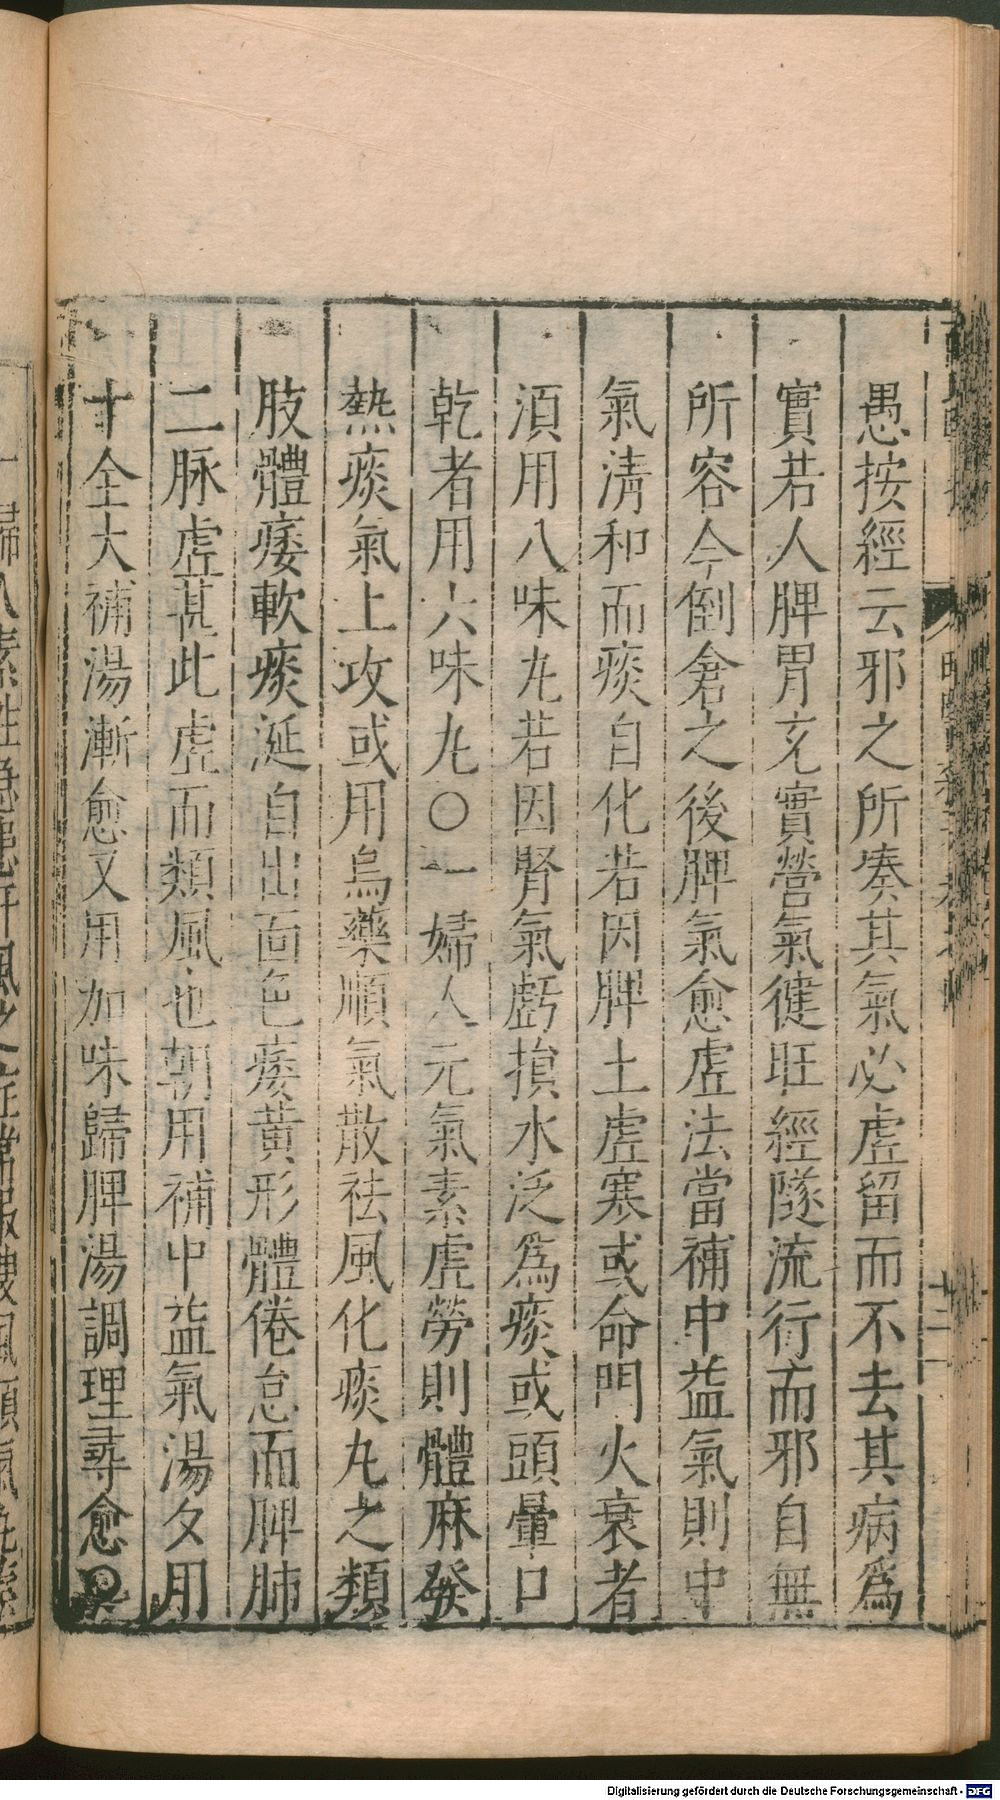 愚按經云邪之所湊其氣必虛留而不去其病爲
實若人脾胃充實營氣健旺經隧流行而邪自無
所容今倒倉之後脾氣愈虛法當補中益氣則中
氣淸和而痰自化若因脾土虛寒或命門火衰者
湏用八味丸若因腎氣虧損水泛爲痰或頭暈口
乾者用六味丸〇一婦人元氣素虛勞則體麻發
熱痰氣上攻或用烏藥順氣散祛風化痰丸之類
肢體痿軟痰涎自出面色痿黃形體倦怠而脾肺
二脉虛甚此虛而類風也朝用補中益氣湯夕用
十全大補湯漸愈又用加味歸脾湯調理尋愈〇
Digitalisierung gefördert durch die Deutsche Forschungsgemeinschaft - DFG